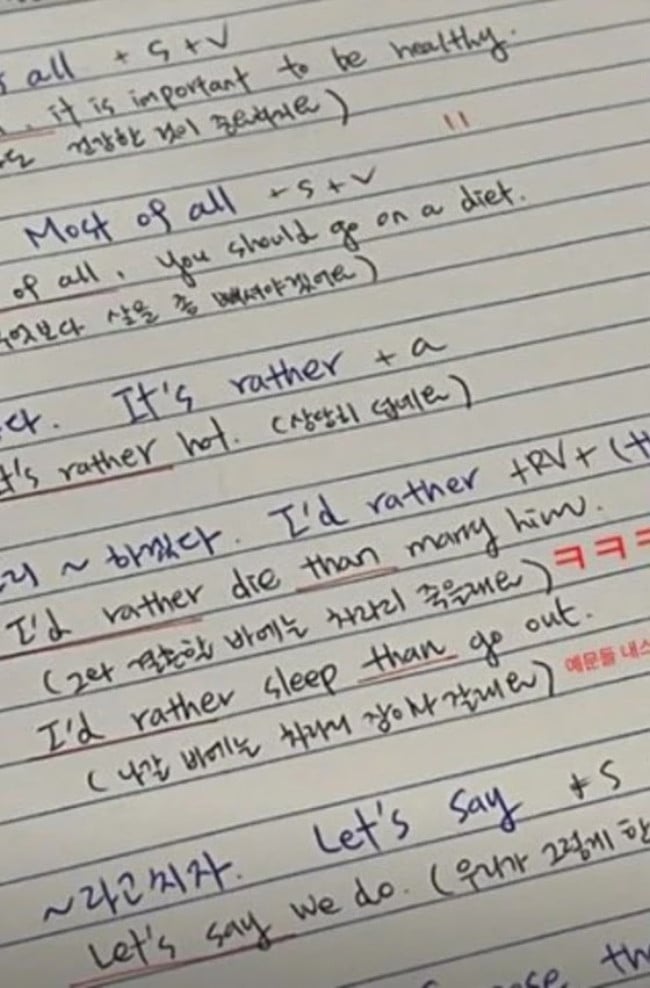 all + S + V
it is important to be healthy.
건강한 것이 중요하지요)
"
Most of all + S + V
of all, you should go on a diet.
살을 좀 빼셔야겠어요)
It's rather + a
It's rather hot. (상당히 덥네요)
~ 하겠다. I'd rather +RV+ (
I'd rather die than marry him.
(그와 결혼할 바에는 차라리 죽을래요) ㅋㅋㅋ
I'd rather sleep than go out. 예문들 내스
(나갈 바에는 차라리 잠이나 잘래요)
Let's say + S
~라고 치자.
Let's say we do. (우리가 그렇게 한